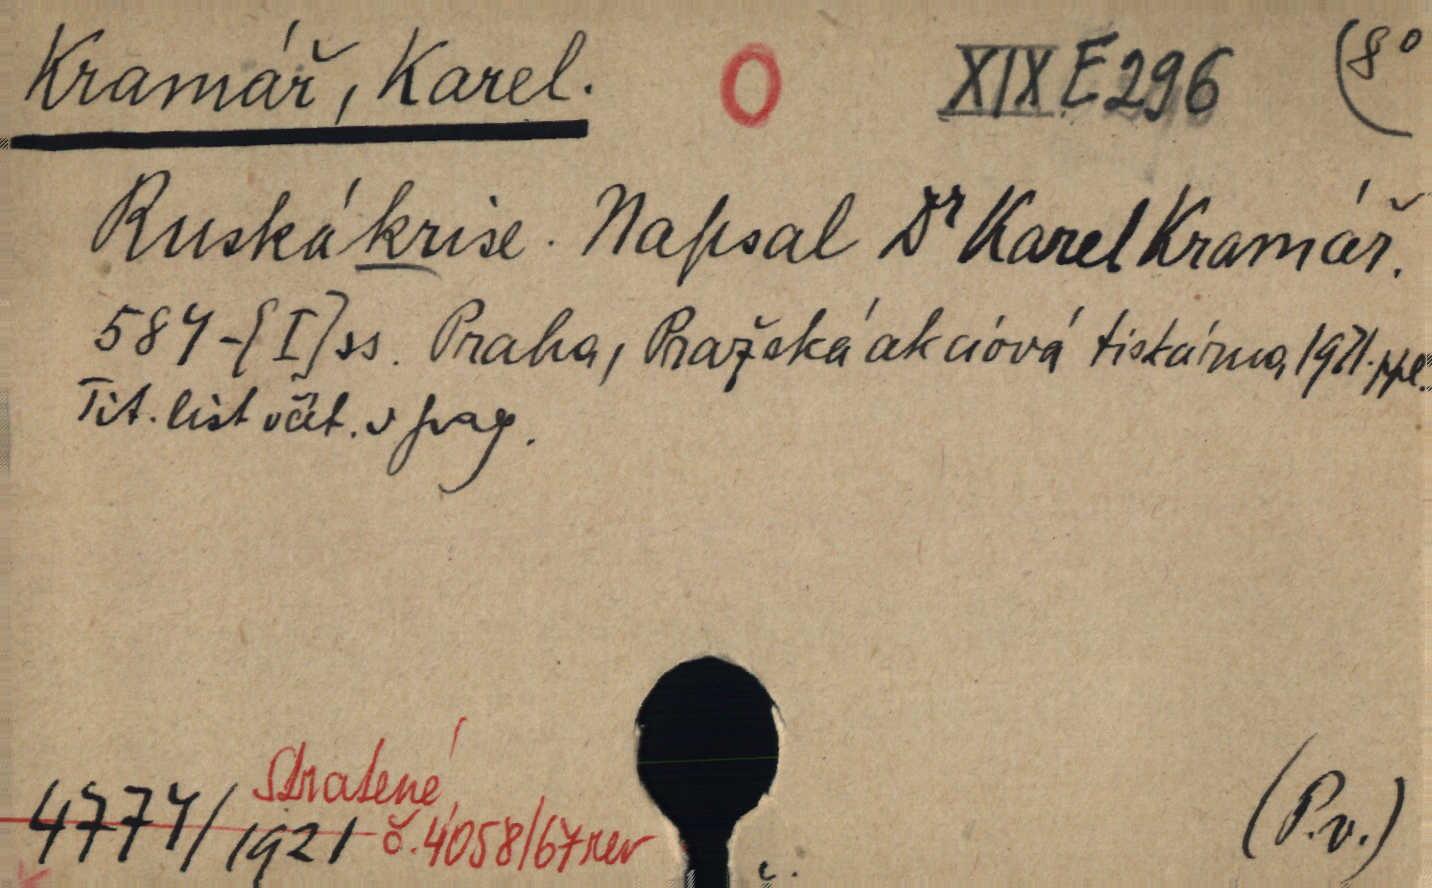 Kramář, Karel. O XIX E 296 (8°
Ruská krise. Napsal Dr Karel Kramář.
584-[I] ss. Praha, Pražská akciová tiskárna, 1921. ppl.
Tit. list včět. v pag.
Stratené
4774/1921 č. 4058/67 rev
(P.v.)
č.